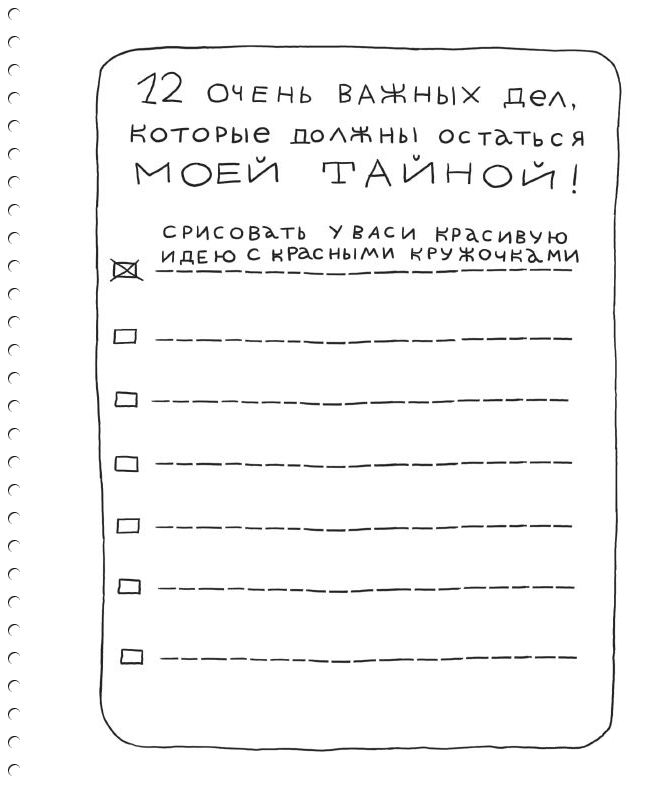 12 ОЧЕНЬ ВАЖНЫХ ДЕЛ,
КОТОРЫЕ ДОЛЖНЫ ОСТАТЬСЯ
МОЕЙ ТАЙНОЙ!
СРИСОВАТЬ У ВАСИ КРАСИВУЮ
ИДЕЮ С КРАСНЫМИ КРУЖОЧКАМИ